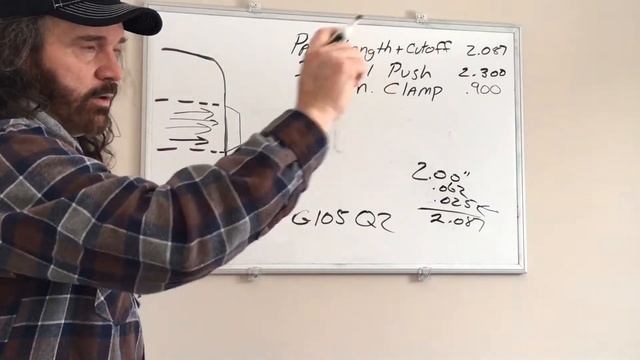 length + Cutoff 2.087
Push 2.300
Clamp .900
2.00"
.062
.025
2.087
G105 Q2